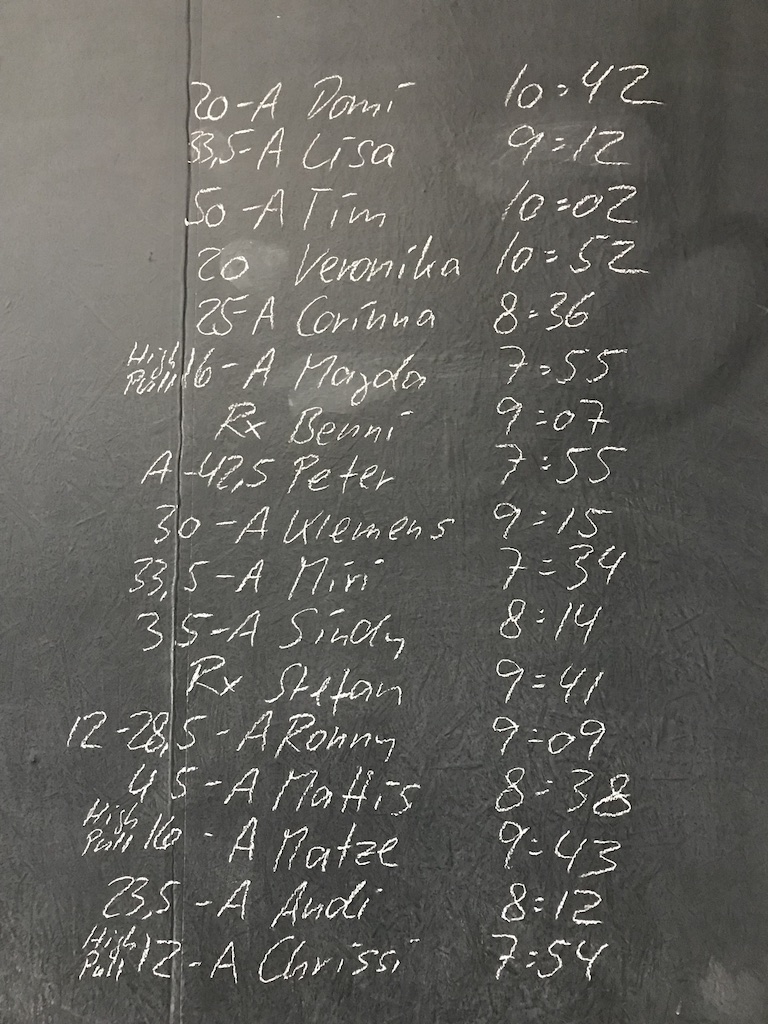 20-A Domi 10:42
33,5-A Lisa 9:12
50-A Tim 10:02
20 Veronika 10:52
25-A Corinna 8:36
High Pull 16-A Magda 7:55
Rx Benni 9:07
A-42,5 Peter 7:55
30-A Klemens 9:15
33,5-A Miri 7:34
35-A Sindy 8:14
Rx Stefan 9:41
12-28,5-A Ronny 9:09
45-A Mattis 8:38
High Pull 16-A Matze 9:43
23,5-A Andi 8:12
High Pull 12-A Chrissi 7:54